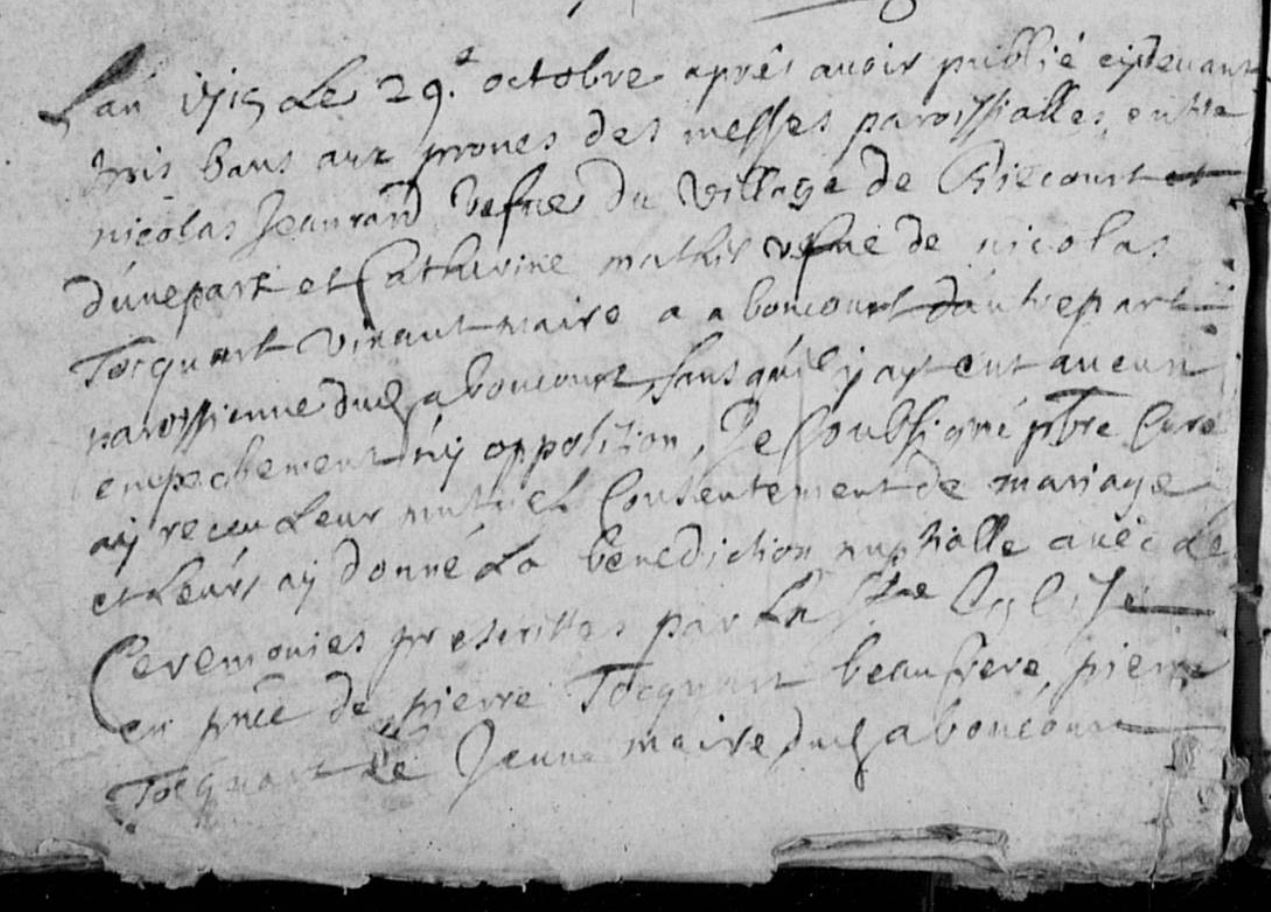 L'an 1715 Le 29.e octobre aprés auoir publié cydeuant
trois bans aux prones des messes paroissialles, entre
nicolas Jeanrard vefue du village de Criecourt et
d'une part et Catherine mathis vefue de nicolas
Tocquart viuant maire a aboncourt d'autre part
paroissienne dud aboncourt, sans qu'il y ayt eut aucun
empechement n'y opposition, Je soubsigné pbre Curé
aij receu Leur mutuel Consentement de mariage
et Leurs aij donné La benediction nuptialle auéc Le
Ceremonies prescrittes par La Ste Eglise
en pnce de pierre Tocquart beaufrere, pierre
Tocquart Le Jeune maire dud aboncourt